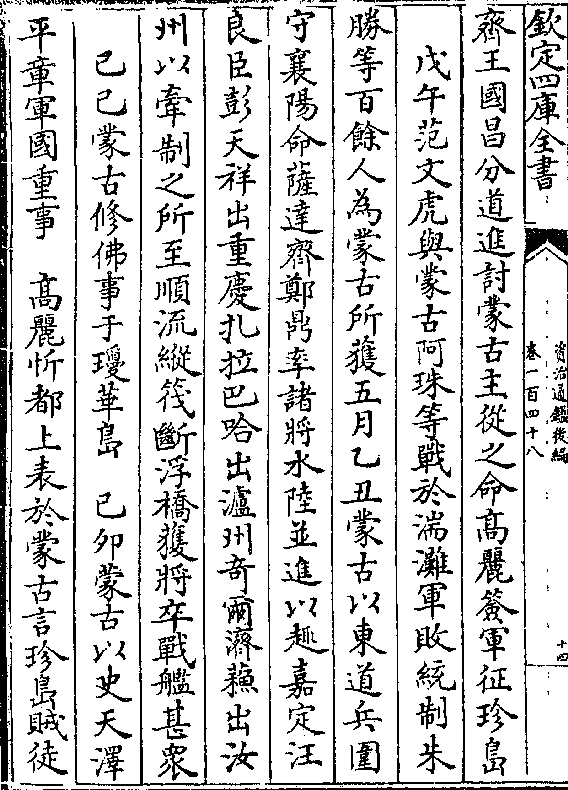 欽定四庫全書
資治通鑑後編
卷一百四十八
十四
齊王國昌分道進討蒙古主從之命高麗簽軍征珍島
戊午范文虎與蒙古阿珠等戰於湍灘軍敗統制朱
勝等百餘人為蒙古所獲五月乙丑蒙古以東道兵圍
守襄陽命薩達齊鄭鼎率諸將水陸並進以趣嘉定汪
良臣彭天祥出重慶扎拉巴哈出瀘州奇爾濟蘓出汝
州以牽制之所至順流縱筏斷浮橋獲將卒戰艦甚衆
己巳蒙古修佛事于瓊華島 己卯蒙古以史天澤
平章軍國重事 高麗忻都上表於蒙古言珍島賊徒